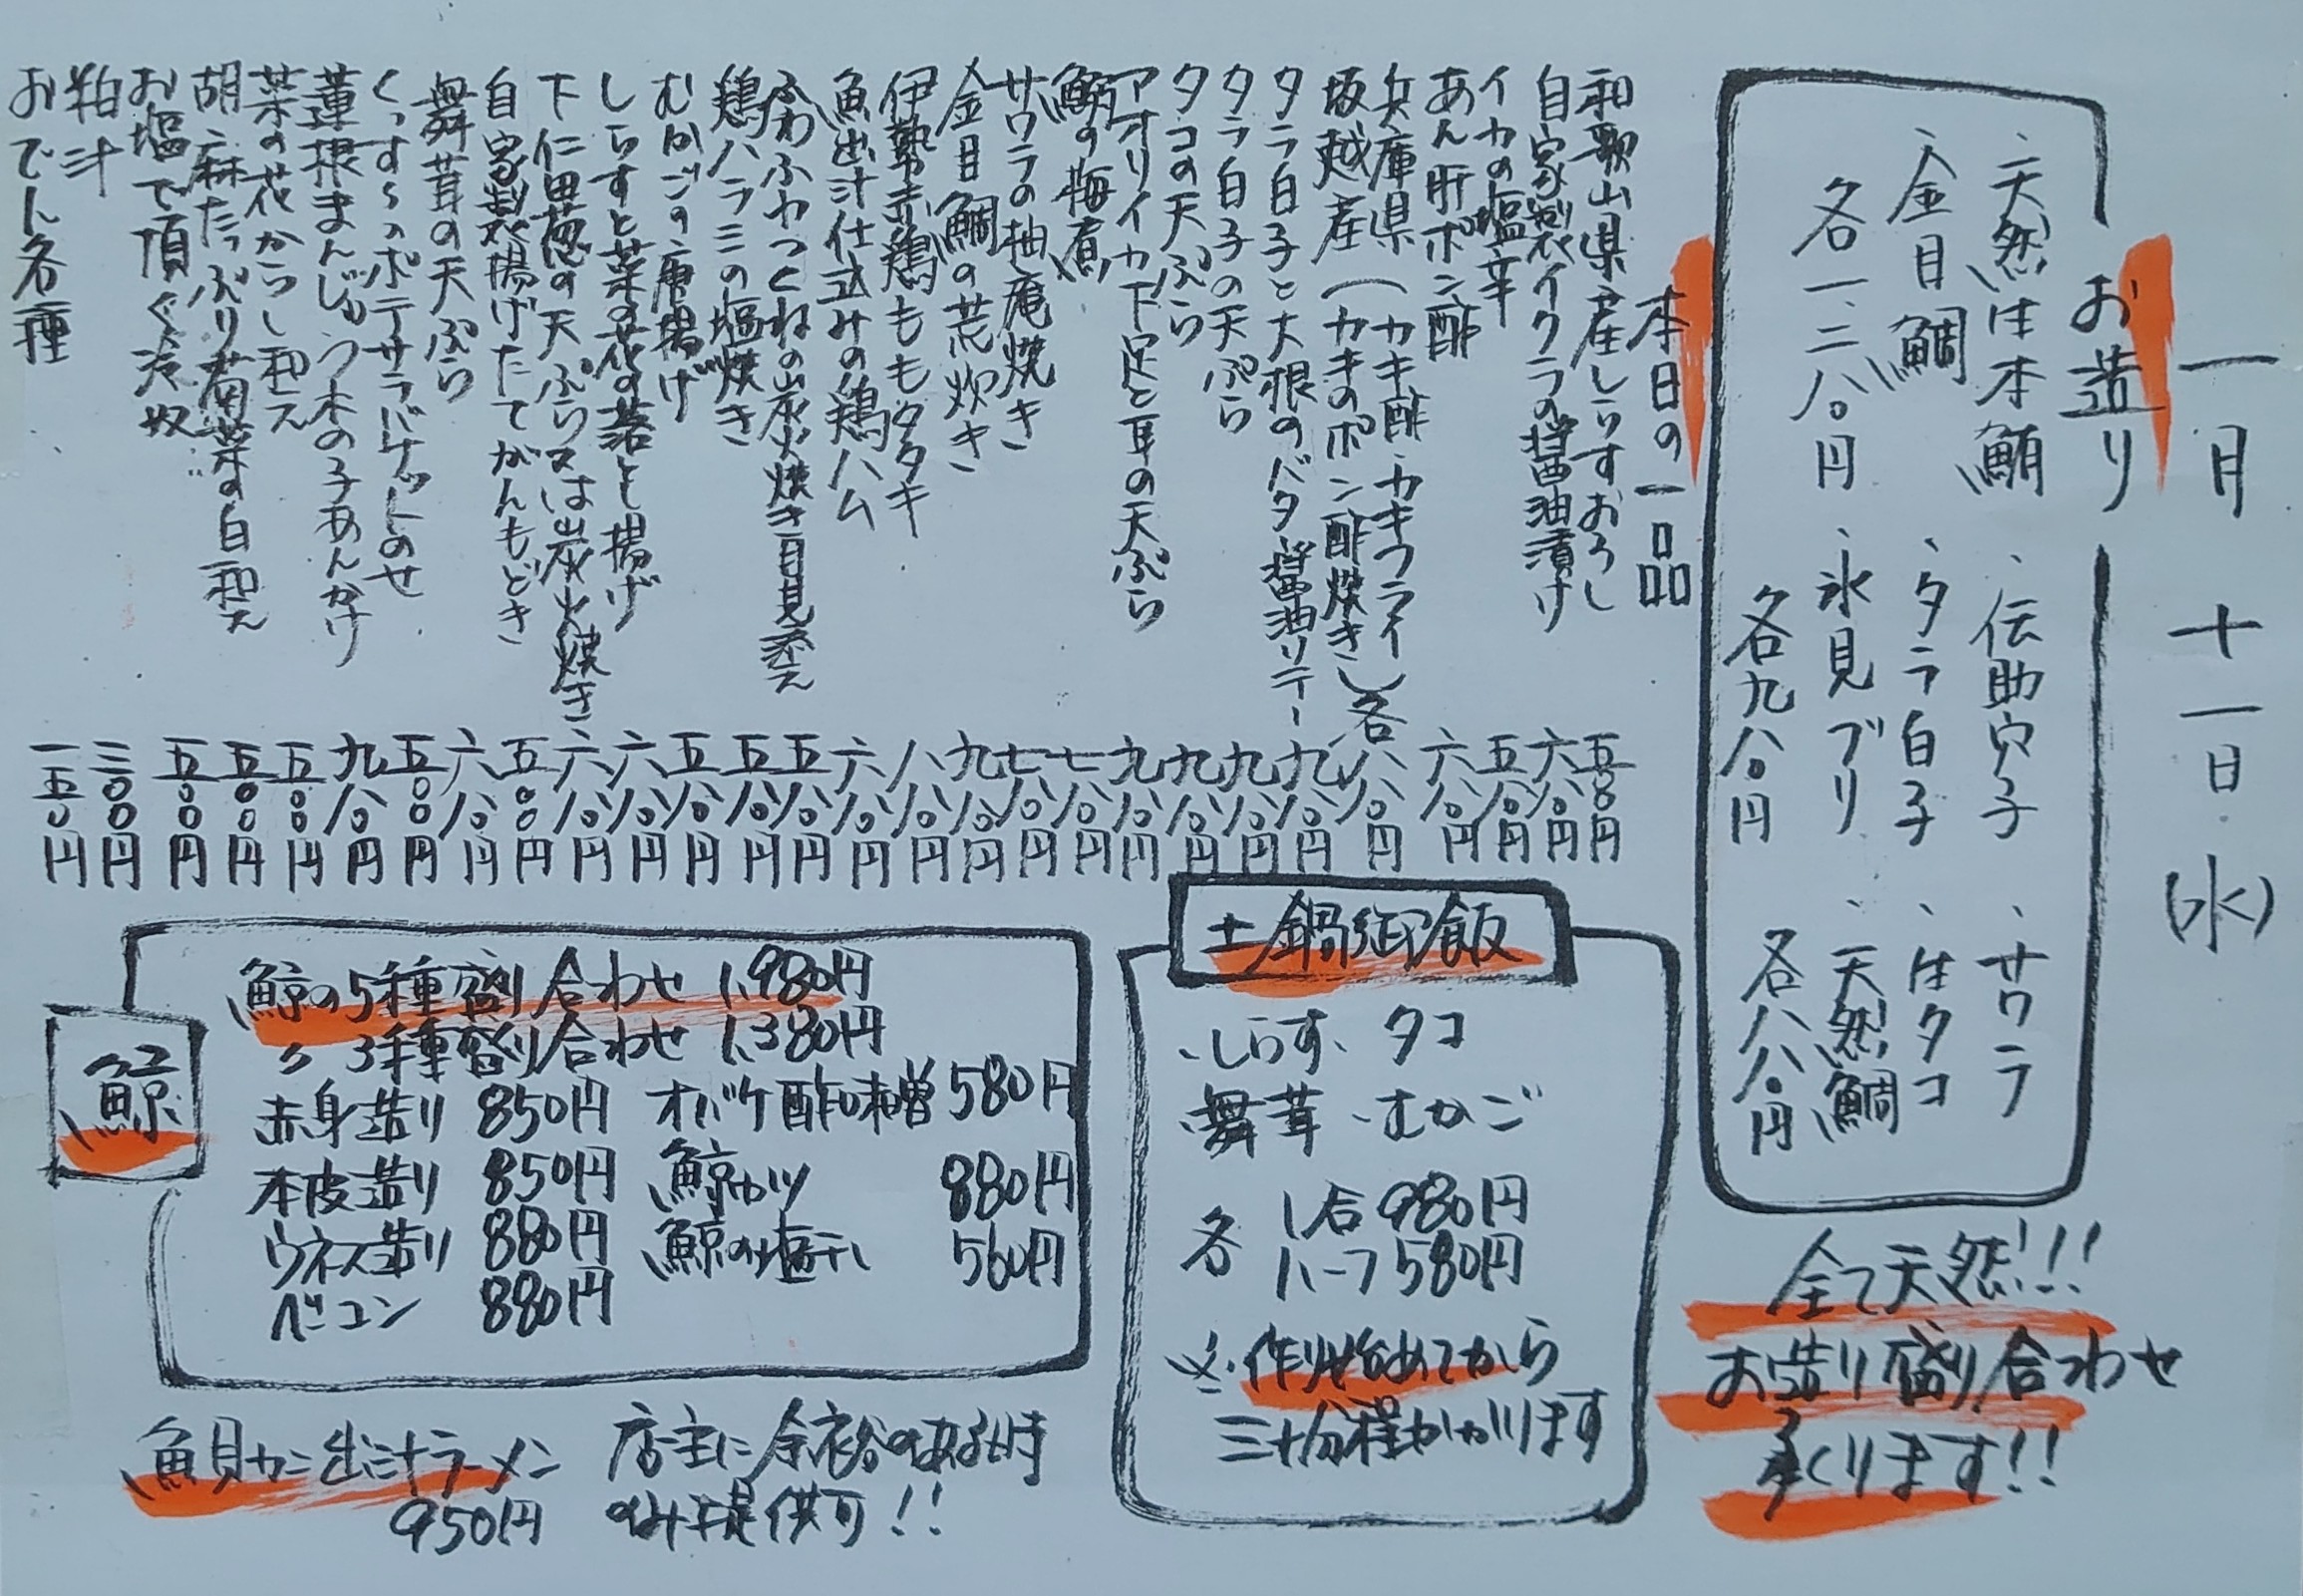 一月十一日(水)
お造り
、天然生本鮪
、金目鯛
各一、二八〇円
、伝助穴子
、タラ白子
、氷見ブリ
各九八〇円
、サワラ
、生タコ
、天然鯛
各八八〇円
全て天然!!!
お造り盛り合わせ
承ります!!
本日の一品
和歌山県産しらすおろし 五八〇円
自家製イクラの醤油漬け 六八〇円
イカの塩辛 五八〇円
あん肝ポン酢 六八〇円
兵庫県 (カキ酢・カキフライ
坂越産 (カキのポン酢焼き) 各八八〇円
タラ白子と大根のバター醤油ソテー 九八〇円
タラ白子の天ぷら 九八〇円
タコの天ぷら 九八〇円
アオリイカ下足と耳の天ぷら 九八〇円
鰯の梅煮 七八〇円
サワラの柚庵焼き 七八〇円
金目鯛の荒炊き 九八〇円
伊勢赤鶏ももタタキ 八八〇円
魚出汁仕立みの鶏ハム 六八〇円
ふわふわつくねの炭火焼き目見添え 五八〇円
鶏ハラミの塩焼き 五八〇円
むかごの唐揚げ 五八〇円
しらすと菜の花の落とし揚げ 六八〇円
下仁田葱の天ぷら又は炭火焼き 六八〇円
自家製揚げたてがんもどき 五〇〇円
舞茸の天ぷら 六八〇円
くっすぅのポテサラバケットのせ 五〇〇円
蓮根まんじゅう本の子あんかけ 九八〇円
菜の花からし和え 五〇〇円
胡麻たっぷり菊菜の白和え 五〇〇円
お塩で頂く冷奴 五〇〇円
粕汁 三〇〇円
おでん各種 一五〇円
土鍋御飯
、しらす、タコ
、舞茸、むかご
各 1合 980円
ハーフ 580円
※作り始めてから
三十分程かかります
鯨
鯨の5種盛り合わせ 1,980円
〃 3種盛り合わせ 1,380円
赤身造り 850円 オバケ酢味噌 580円
本皮造り 850円 鯨カツ 880円
ウネス造り 880円 鯨の塩干し 560円
ベーコン 880円
魚貝カニ出汁ラーメン 950円
店主に余裕のある時
のみ提供可!!